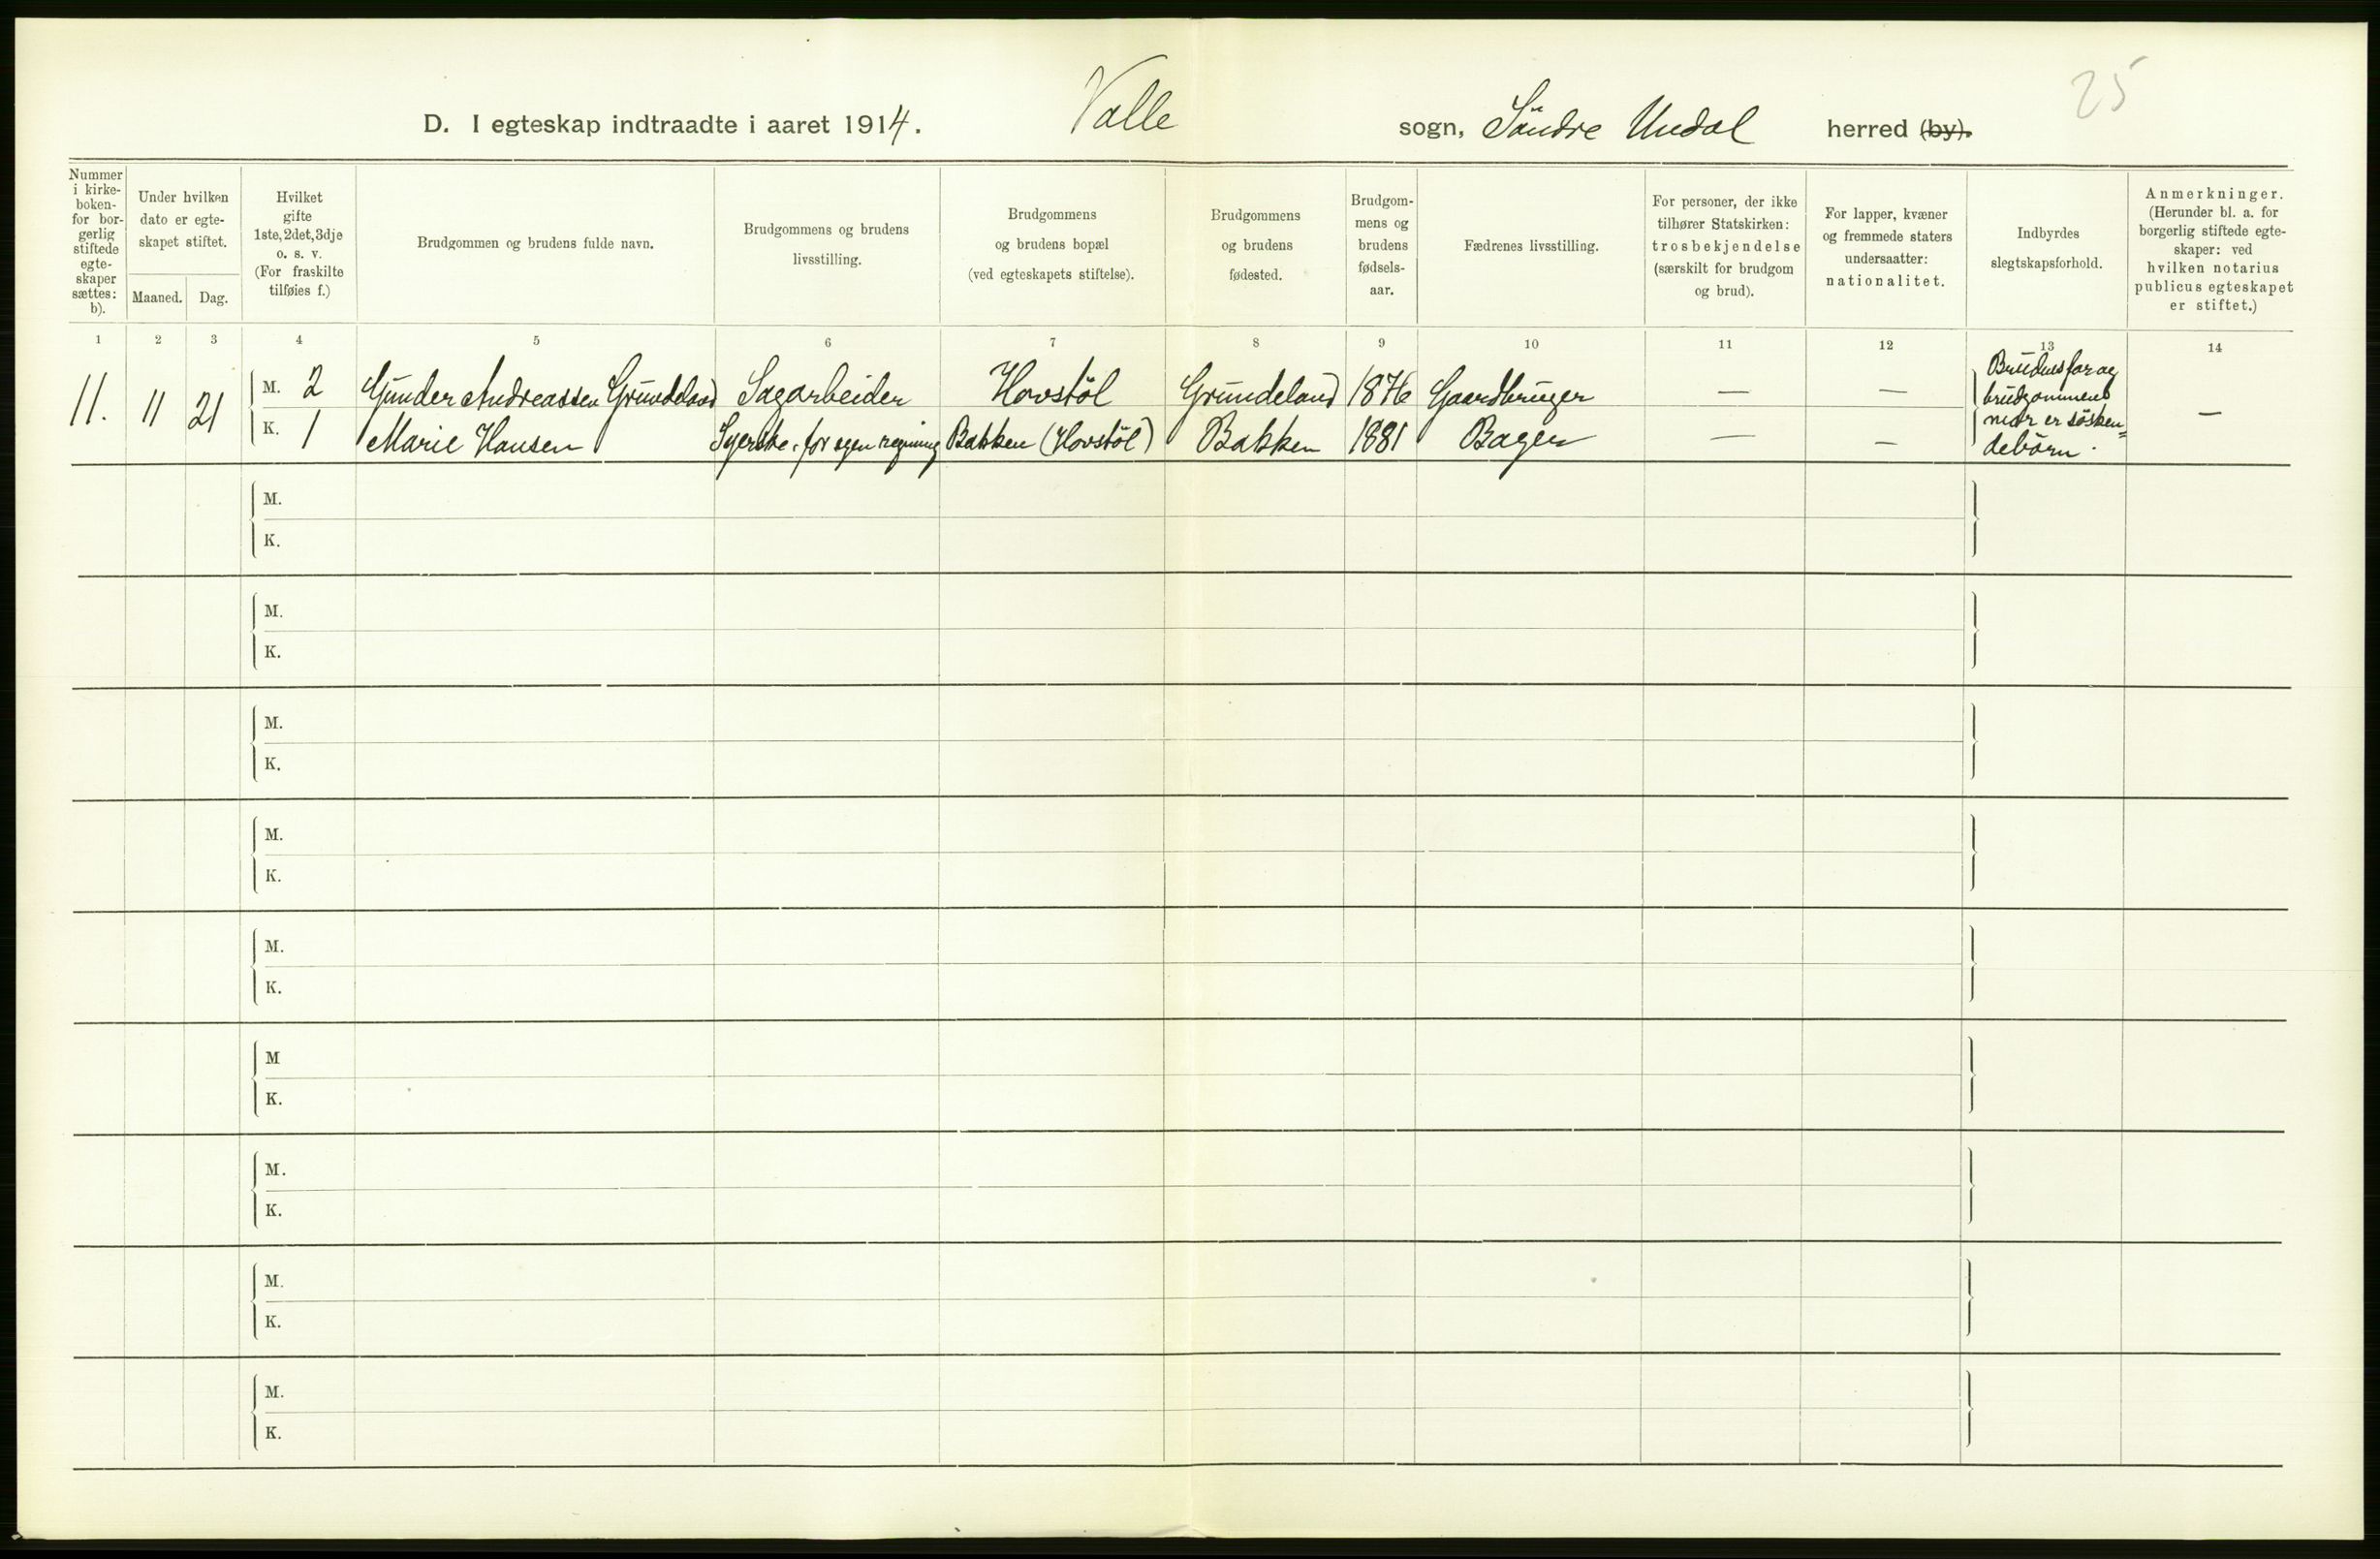 25
D. I egteskap indtraadte i aaret 1914. Valle sogn, Söndre Undal herred (by).
Nummer i kirke- boken- for bor- gerlig stiftede egte- skaper sættes: b).
Under hvilken dato er egte- skapet stiftet.
Maaned. Dag.
Hvilket gifte 1ste, 2det, 3dje o. s. v. (For fraskilte tilføies f.)
Brudgommen og brudens fulde navn.
Brudgommens og brudens livsstilling.
Brudgommens og brudens bopæl (ved egteskapets stiftelse).
Brudgommens og brudens fødested.
Brudgom- mens og brudens fødsels- aar.
Fædrenes livsstilling.
For personer, der ikke tilhører Statskirken: trosbekjendelse (særskilt for brudgom og brud).
For lapper, kvæner og fremmede staters undersaatter: nationalitet.
Indbyrdes slegtskapsforhold.
Anmerkninger. (Herunder bl. a. for borgerlig stiftede egte- skaper: ved hvilken notarius publicus egteskapet er stiftet.)
1 2 3 4 5 6 7 8 9 10 11 12 13 14
11. 11 21 M. 2 Gunder Andreassen Grundeland Sagarbeider Hovstöl Grundeland 1876 Gaardbruger — —
K. 1 Marie Hansen Syerske, for egen regning Bakken (Hovstöl) Bakken 1881 Bager — —
Brudens far og
brudgommens
mor er søsken=
debørn.
—
M.
K.
M.
K.
M.
K.
M.
K.
M.
K.
M
K.
M.
K.
M.
K.
M.
K.